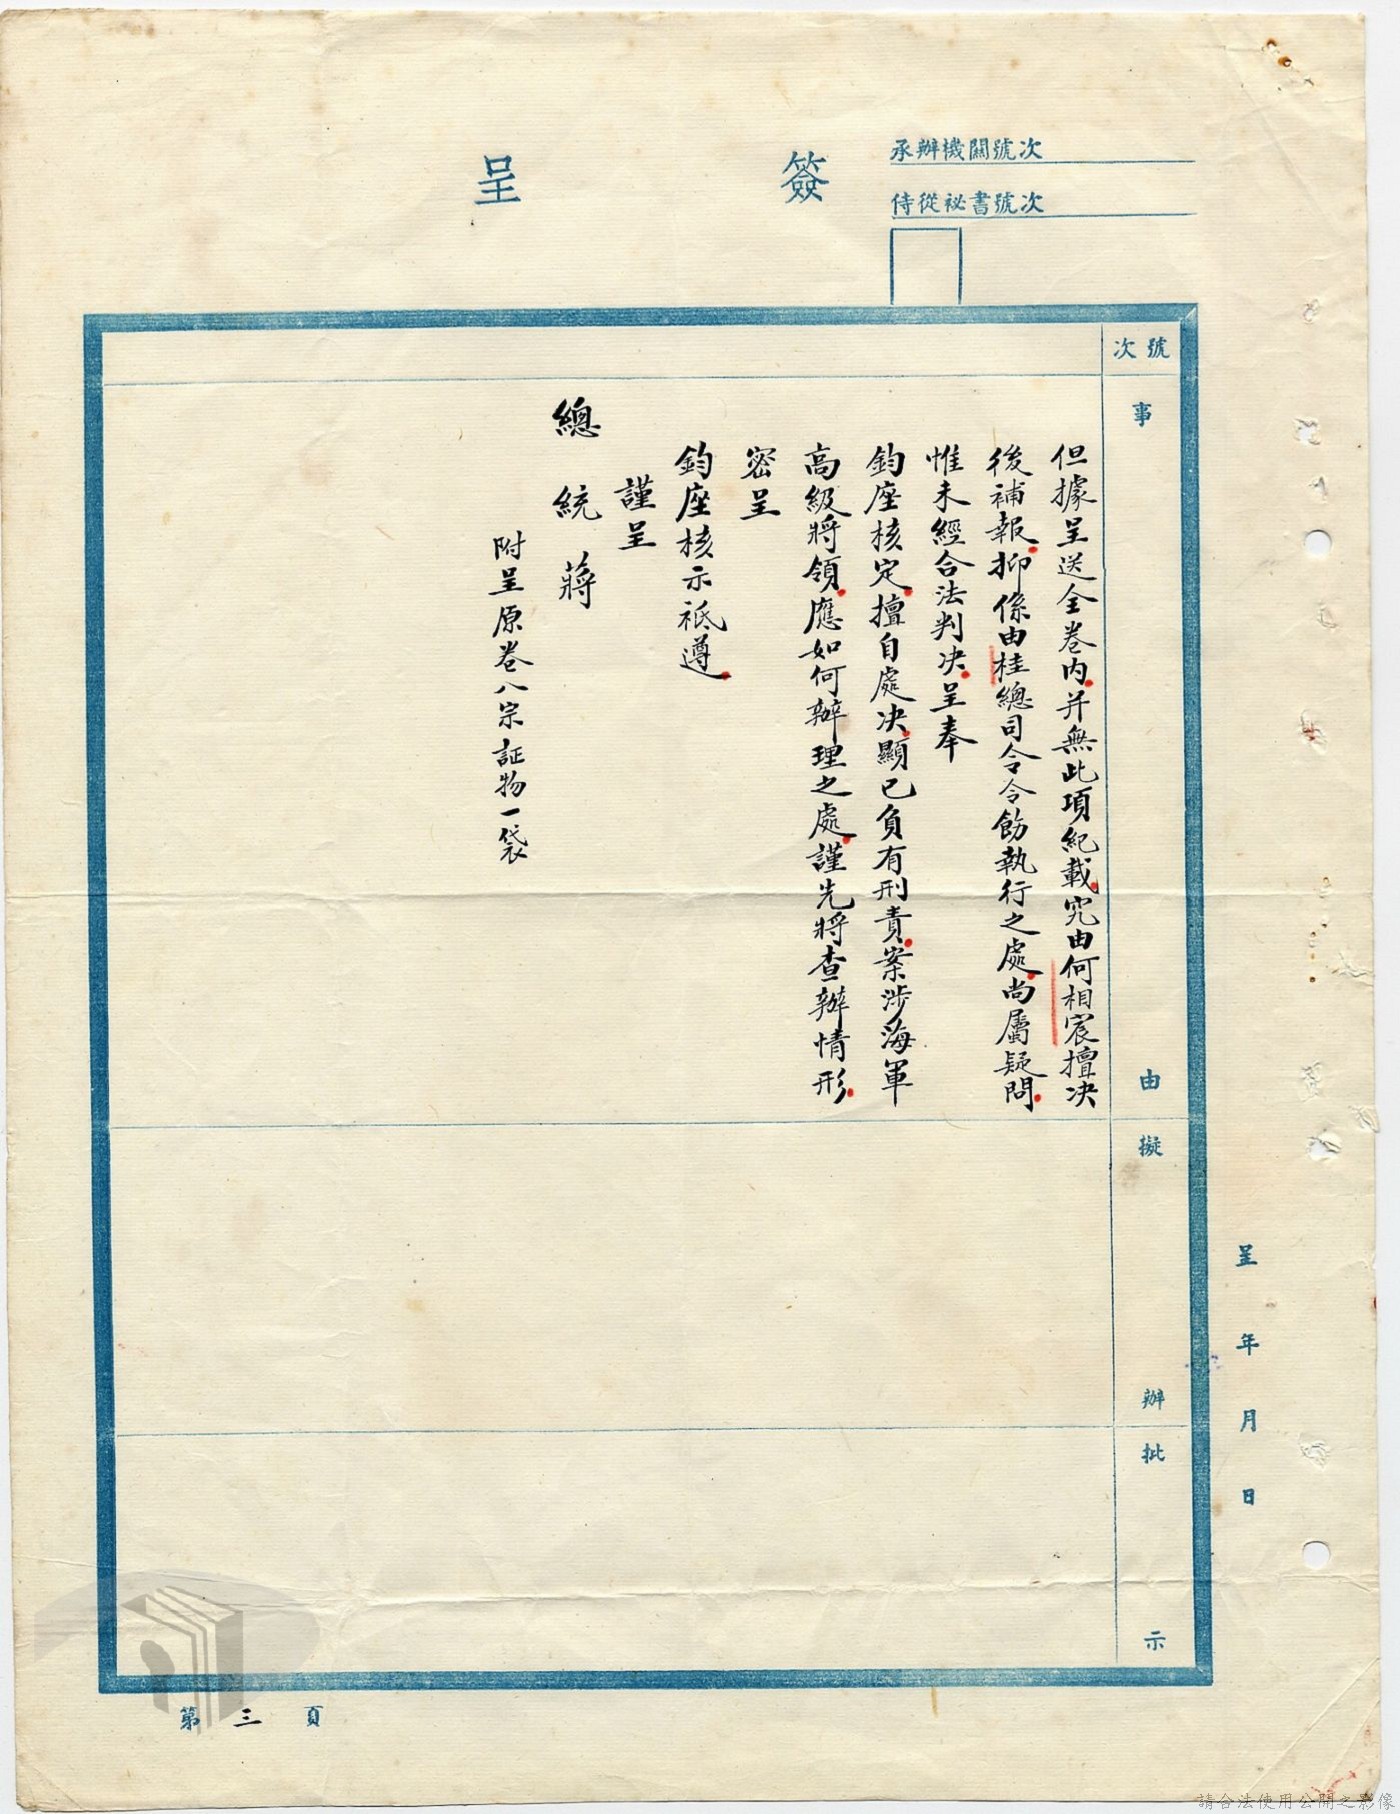 簽呈
承辦機關號次
侍從祕書號次
號次
事由
擬辦
批示
但據呈送全卷內并無此項紀載究由何相宸擅決
後補報抑係由桂總司令令飭執行之處尚屬疑問
惟未經合法判決呈奉
鈞座核定擅自處決顯已負有刑責案涉海軍
高級將領應如何辦理之處謹先將查辦情形
密呈
鈞座核示祗遵
謹呈
總統蔣
附呈原卷八宗証物一袋
呈年月日
第三頁
請合法使用公開之影像